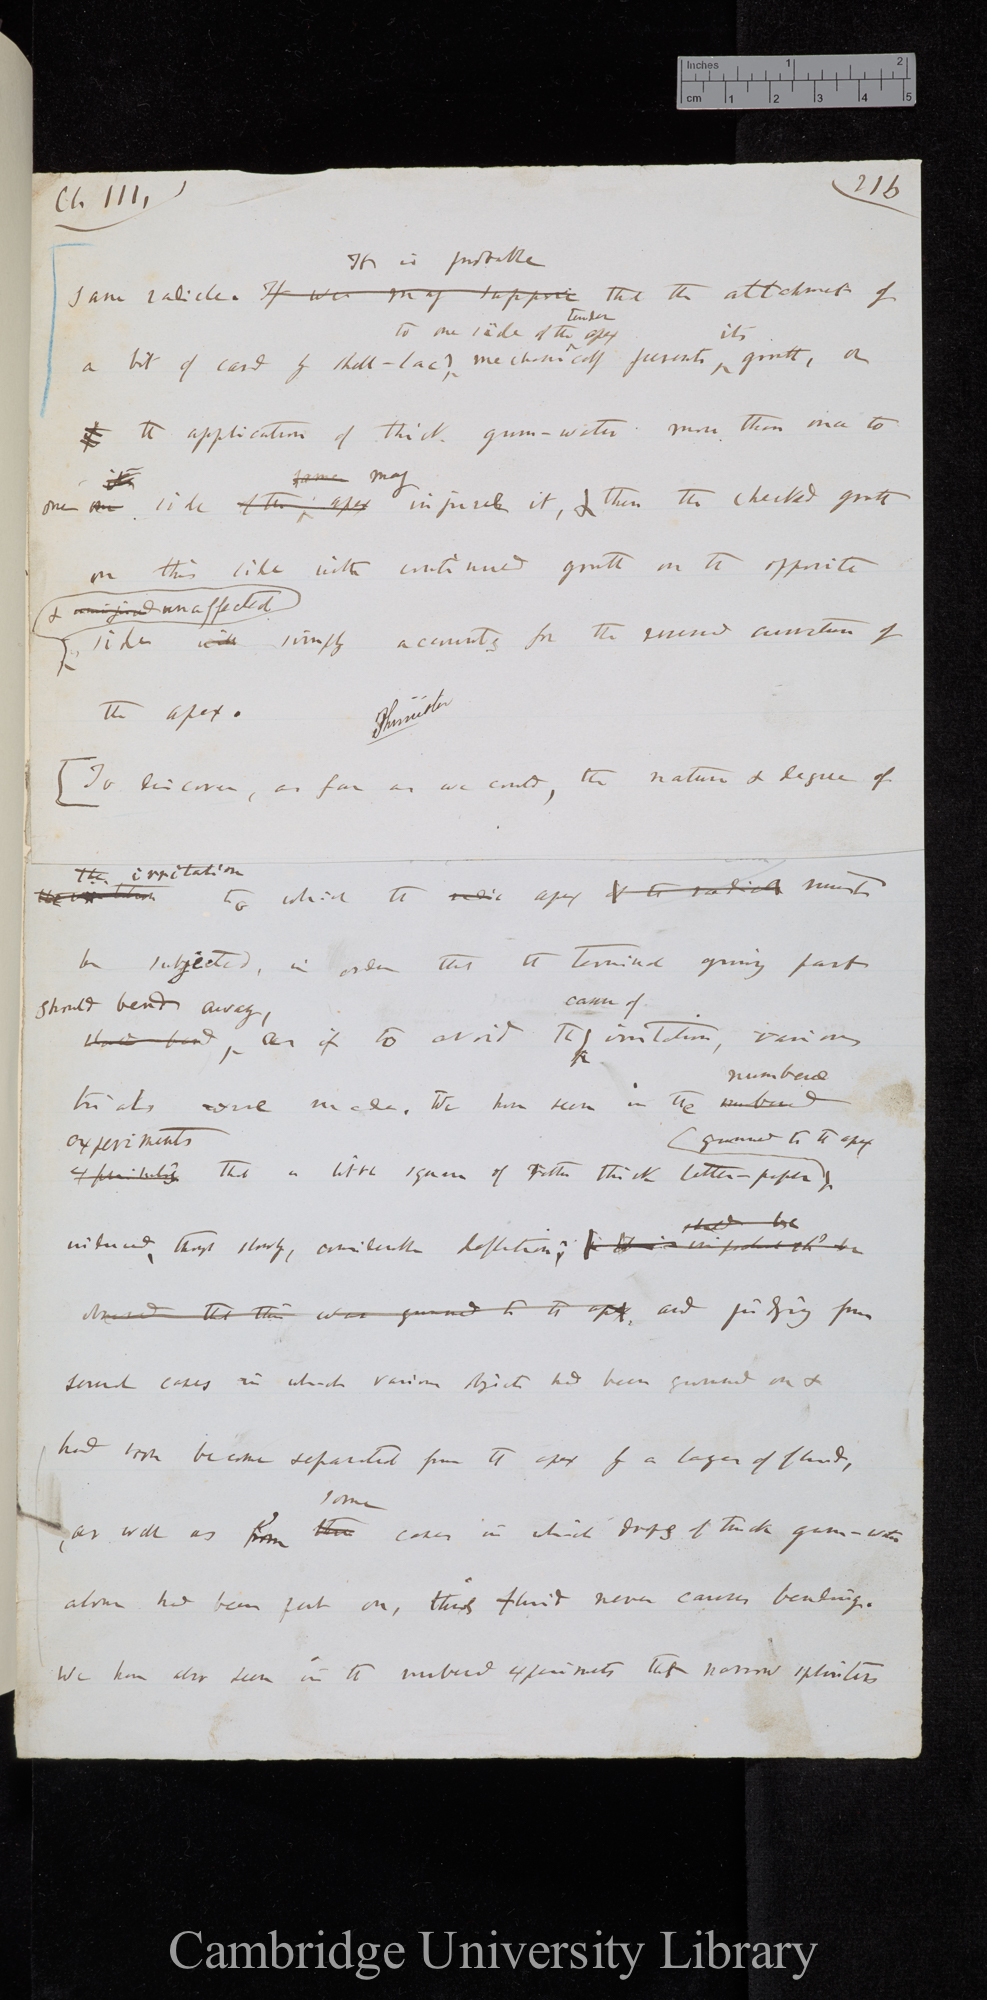 Inches 1 2
cm 1 2 3 4 5
Ch III, 216
It is probable
same radicle. It we may suppose that the attachment of
tender
to one side of the apex its
a bit of card by shell-lac, mechanically prevents growth, or
the application of thick gum-water more than once to
its some may
one side of the apex injure it, & then the checked growth
on this side with continued growth on the opposite
& unaffected
side will simply accounts for the reversed curvature of
the apex.
[To discover, as far as we could, the nature & degree of
the irritation
to which the apex of the radicle must
be subjected, in order that the terminal growing part
should bend away,
as if to avoid the irritation, various
cause of
numbered
trials were made. We have seen in the numbered
experiments (gummed to the apex
experiments that a little square of rather thick letter-paper)
induced, though slowly, considerable deflection;
should be
observed that this was gummed to the apex, and judging from
several cases in which various objects had been gummed on &
had soon become separated from the apex by a layer of fluid,
some
as well as from cases in which drops of thick gum-water
alone had been put on, this fluid never causes bending.
We have also seen in the numbered experiments that narrow splinters
Cambridge University Library